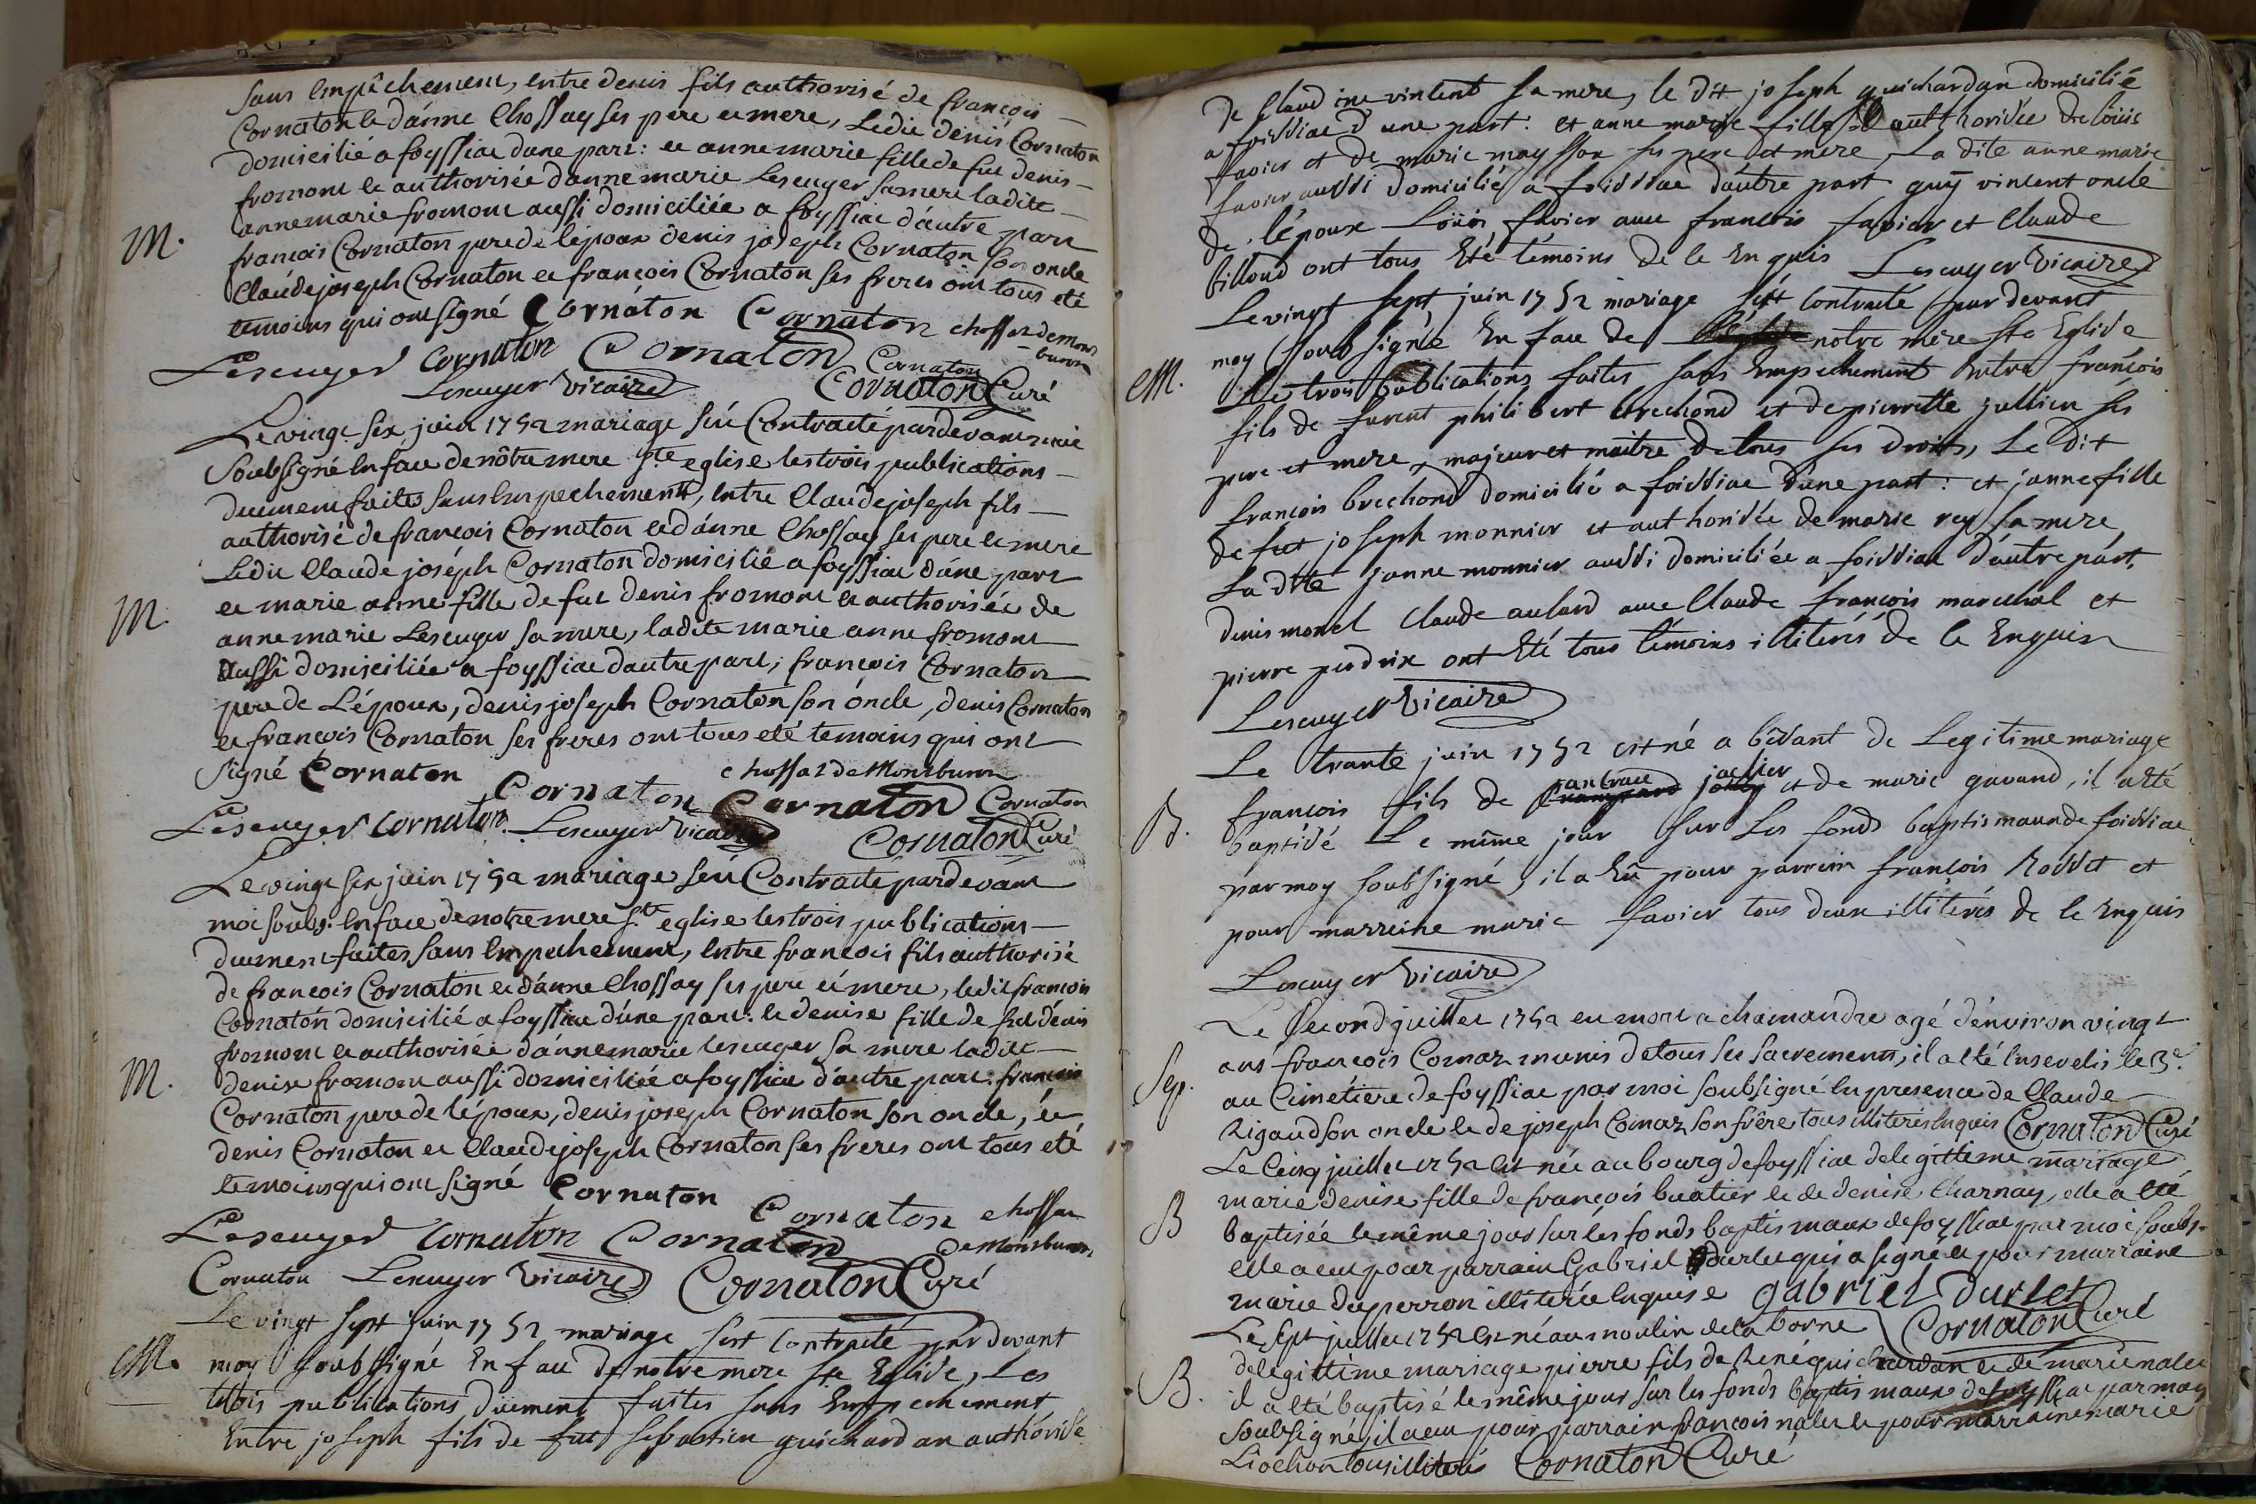 Sans Empêchement, entre denis fils authorisé de françois
Cornaton et d'anne Chossay ses pere et mere, Ledit denis Cornaton
domicilié a foyssiac dune part: et anne marie fille de fut denis
fromont et authorisée danne marie Lescuyer sa mere ladite
annemarie fromont aussi domiciliée a foyssiac d'autre part
M.
françois Cornaton pere de lépoux denis joseph Cornaton son oncle
Claude joseph Cornaton et françois Cornaton ses freres ont tous eté
temoins qui ont signé Cornaton Cornaton chossat de mont
buron
Lescuyer cornaton Cornaton Cornaton
Lescuyer vicaire Cornaton Curé
Le vingt six juin 1752 mariage sét Contracté pardevant moi
Soubsigné En face de nôtre mere Ste eglise les trois publications
duement faites sans Empechement, entre Claude joseph fils
authorisé de françois Cornaton et d'anne Chossay ses pere et mere
Ledit Claude joséph Cornaton domicilié a foyssiac dune part
M.
et marie anne fille de fut denis fromont et authorisée de
anne marie Lescuyer sa mere, ladite marie anne fromont
aussi domiciliée a foyssiac dautre part, françois Cornaton
pere de L'époux, denis joseph Cornaton son oncle, denis Cornaton
et françois Cornaton ses freres ont tous eté temoins qui ont
signé Cornaton Cornaton chossat de Montburon
Cornaton Cornaton
Lescuyer cornaton Lescuyer vicaire Cornaton Curé
Le vingt six juin 1752 mariage sét Contracté pardevant
moi soubs. En face de notre mere Ste eglise les trois publications
duement faites sans Empechement, entre françois fils authorisé
de françois Cornaton et d'anne Chossay ses pere et mere, ledit françois
Cornaton domicilié a foyssiac d'une part: et denise fille de fut denis
fromont et authorisée d'anne marie lescuyer sa mere ladite
M.
denise fromont aussi domiciliée a foyssiac d'autre part: françois
Cornaton pere de l'époux, denis joseph Cornaton son oncle, et
denis Cornaton et Claude joseph Cornaton ses freres ont tous eté
temoins qui ont signé Cornaton Cornaton chossat
de Montburon
Lescuyer cornaton Cornaton
Cornaton Lescuyer vicaire Cornaton Curé
Le vingt sept juin 1752 mariage sest contracté par devant
M.
moy soubsigné En face de notre mere ste Eglise, Les
trois publications duement faites sans Empechement
Entre joseph fils de fut sebastien guichardan authorisé
de Claudine vintent sa mere, le dit joseph guichardan domicilié
a foissiac d'une part: et anne marie fille authorisée de loüis
favier et de marie maysson ses pere et mere, La dite anne marie
favier aussi domiciliée a foissiac d'autre part guy vincent oncle
de l'époux Loüis favier avec françois favier et Claude
billoud ont tous Eté témoins de le Enquis Lescuyer vicaire
Le vingt sept juin 1752 mariage sest contracté par devant
M.
moy soubsigné En face de notre mère ste Eglise
Les trois publications faites sans Empechement Entre françois
fils de furent philibert brechond et de pierrette jullien ses
pere et mere, majeur et maitre de tous ses droits, Le dit
françois brechond domicilié a foissiac d'une part: et janne fille
de fut joseph monnier et authorisée de marie rey sa mere
La dite janne monnier aussi domiciliée a foissiac d'autre part.
denis morel Claude aulard avec Claude françois marechal et
pierre perdrix ont Eté tous témoins illiterés de le Enquis
Lescuyer vicaire
Le trante juin 1752 est né a bévant de Legitime mariage
jaclier
B.
françois fils de et de marie gavand, il a Eté
baptisé Le mème jour sur Les fonds baptismaux de foissiac
par moy soubsigné, il a Eû pour parrein françois Rosset et
pour marreine marie favier tous deux illiterés de le Enquis
Lescuyer vicaire
Le second juillet 1752 est mort a chamandre agé d'environ vingt
ans françois Comaz munis de tous ses sacrements, il a eté Enseveli le 3e.
Sep.
au Cimétiere de foyssiac par moi soubsigné En presence de Claude
Rigaud son oncle et de joseph Comaz son frère tous illiterés Enquis Cornaton Curé
Le Cinq juillet 1752 est née au bourg de foyssiac de legittime mariage
marie denise fille de françois buatier et de denise Charnay, elle a eté
B
baptisée le même jour sur les fonds baptismaux de foyssiac par moi soubs.
elle a eu pour parrain Gabriel Durlet qui a signé et pour marraine
marie duperron illiterée Enquise gabriel Durlet
Le sept juillet 1752 est né au moulin de la borne Cornaton Curé
de legittime mariage pierre fils de René guichardan et de marie nalet
B.
il a eté baptisé le même jour sur les fonds baptismaux de foyssiac par moy
soubsigné, il a eu pour parrain françois nalet et pour marraine marie
Liochon tous illiterés Cornaton Curé